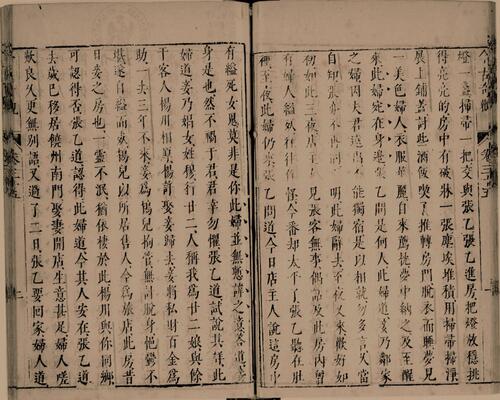 燈一盞掃帚一把交與張乙張乙進房把燈放穩挑
得亮亮的房中有破牀一張塵埃堆積用掃帚掃淨
展上鋪蓋討些酒飯喫了推轉房門脫衣而睡夢見
一美色婦人衣服華麗自來薦枕夢中納之及至醒
來此婦宛在身邊張乙問是何人此婦道妾乃鄰家
之婦因夫君遠出不能獨宿是以相就勿多言久當
自知張乙亦不再問天明此婦辭去至夜又來歡好如
初如此三夜店主人見張客無事偶話及此房內曾
有婦人縊死往往作怪今番却太平了張乙聽在肚
裡至夜此婦仍來張乙問道今日店主人說這房中
有縊死女鬼莫非是你此婦並無慙諱之意答道妾
身是也然不禍于君君幸勿懼張乙道試說其詳此
婦道妾乃娼女姓穆行廿二人稱我為廿二娘與餘
干客人楊川相厚楊許娶妾歸去妾將私財百金為
助一去三年不來妾為鴇兒拘管無計脫身悒鬱不
堪遂自縊而死鴇兒以所居售人今為旅店此房昔
日妾之房也一靈不泯猶依棲於此楊川與你同鄉
可認得否張乙道認得此婦道今其人安在張乙道
去歲已移居饒州南門娶妻開店生意甚足婦人嗟
歎良久更無別語又過了二日張乙要回家婦人道